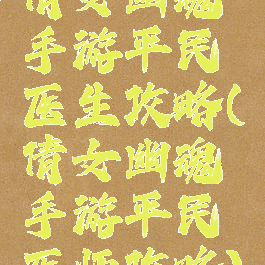 倩女幽魂
手游平民
医生攻略(
倩女幽魂
手游平民
医师攻略)